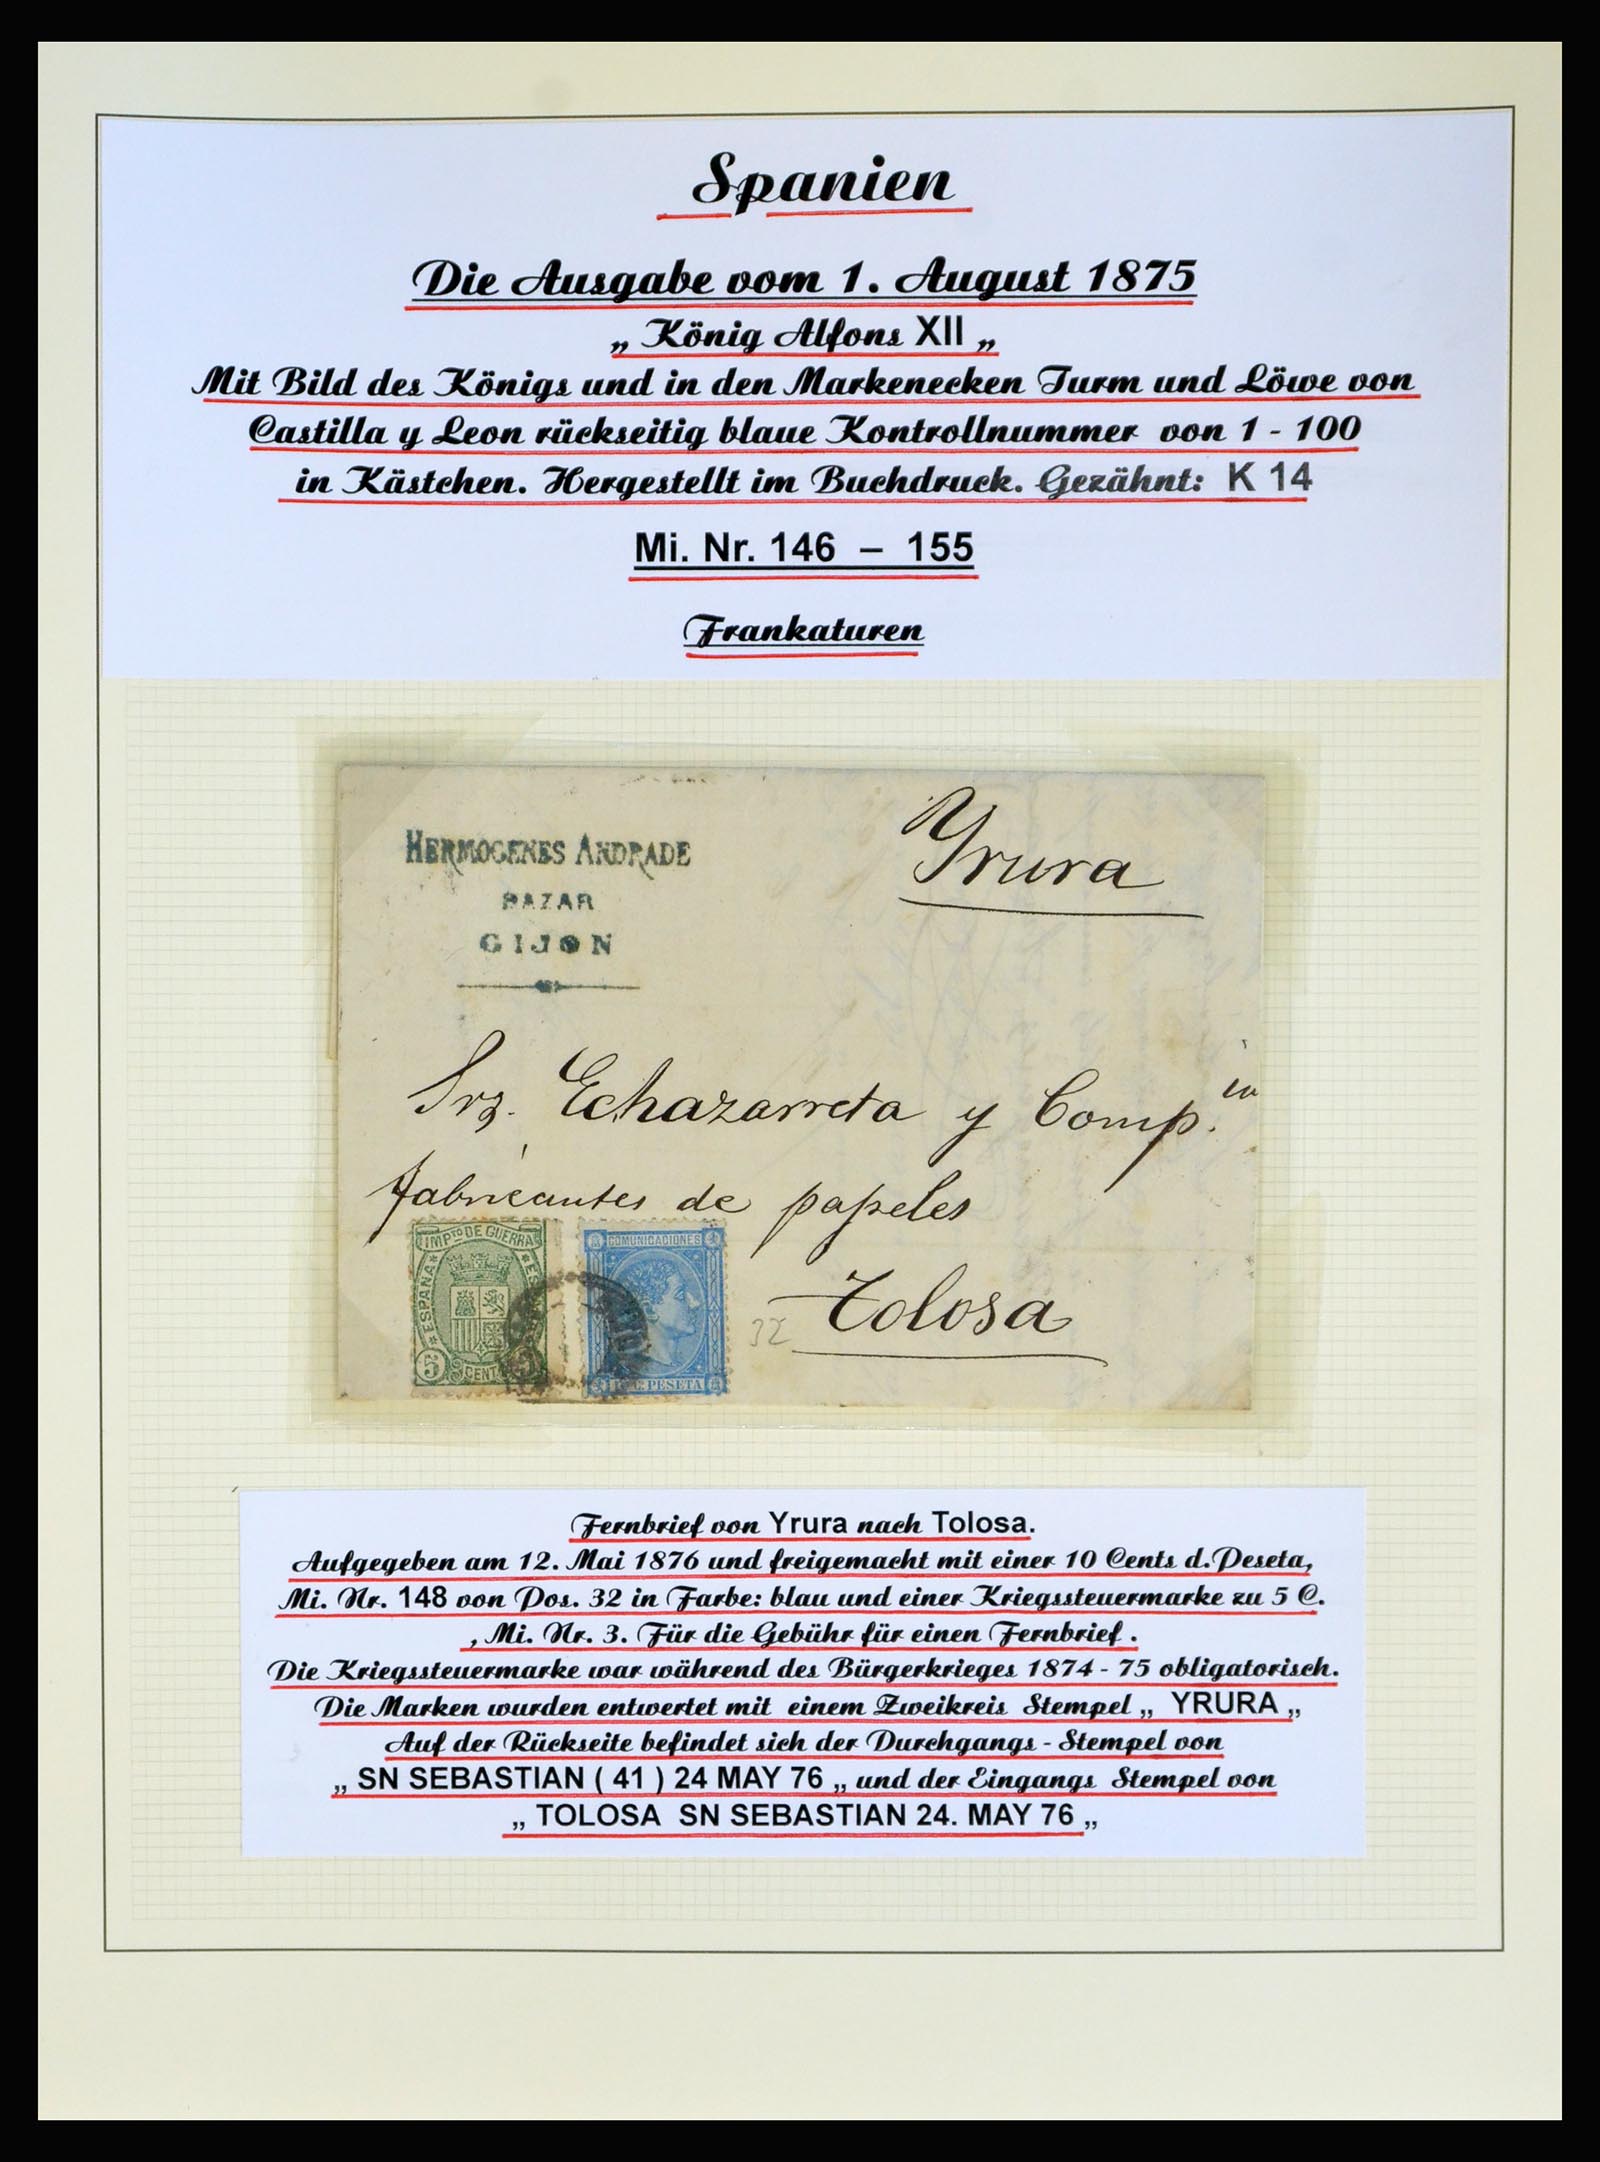 Spanien
Die Ausgabe vom 1. August 1875
„ König Alfons XII „
Mit Bild des Königs und in den Markenecken Turm und Löwe von
Castilla y Leon rückseitig blaue Kontrollnummer von 1 - 100
in Kästchen. Hergestellt im Buchdruck. Gezähnt: K 14
Mi. Nr. 146 – 155
Frankaturen
HERMOGENES ANDRADE
BAZAR
GIJON
Yrura
Srs. Echazarreta y Comp.
fabricantes de papeles
Tolosa
IMPTO DE GUERRA
ESPAÑA
5 CENT
COMUNICACIONES
PESETA
32
Fernbrief von Yrura nach Tolosa.
Aufgegeben am 12. Mai 1876 und freigemacht mit einer 10 Cents d.Peseta,
Mi. Nr. 148 von Pos. 32 in Farbe: blau und einer Kriegssteuermarke zu 5 C.
, Mi. Nr. 3. Für die Gebühr für einen Fernbrief .
Die Kriegssteuermarke war während des Bürgerkrieges 1874 - 75 obligatorisch.
Die Marken wurden entwertet mit einem Zweikreis Stempel „ YRURA „
Auf der Rückseite befindet sich der Durchgangs - Stempel von
„ SN SEBASTIAN ( 41 ) 24 MAY 76 „ und der Eingangs Stempel von
„ TOLOSA SN SEBASTIAN 24. MAY 76 „